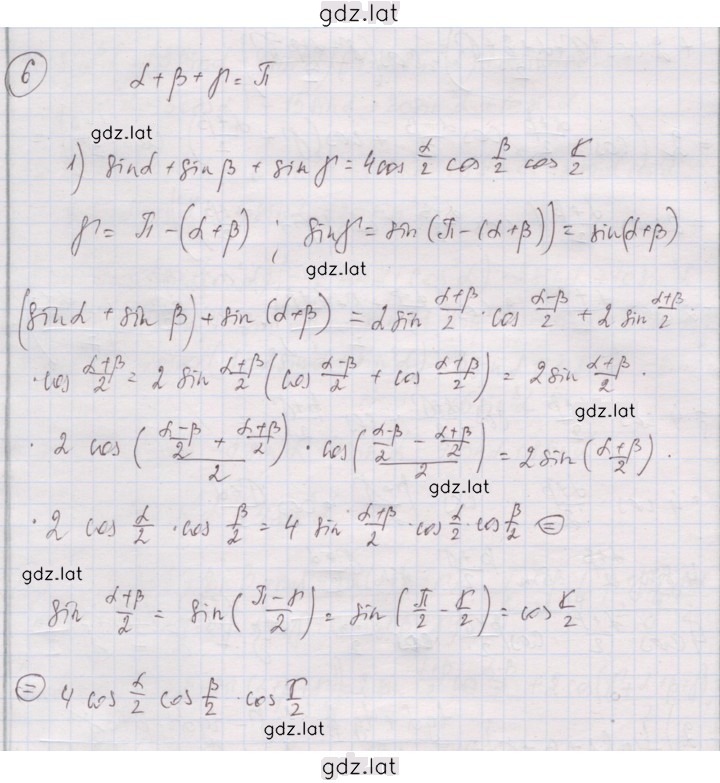 gdz.lat
6 α+β+γ=π
gdz.lat
1) sinα + sinβ + sinγ = 4cos α/2 cos β/2 cos γ/2
γ = π-(α+β) ; sinγ = sin(π-(α+β)) = sin(α+β)
gdz.lat
(sinα + sin β) + sin(α+β) = 2sin (α+β)/2 · cos (α-β)/2 + 2 sin (α+β)/2 ·
· cos (α+β)/2 = 2 sin (α+β)/2 (cos (α-β)/2 + cos (α+β)/2) = 2sin (α+β)/2 ·
gdz.lat
· 2 cos(((α-β)/2 + (α+β)/2)/2) · cos(((α-β)/2 - (α+β)/2)/2) = 2sin((α+β)/2) ·
gdz.lat
· 2 cos α/2 · cos β/2 = 4 sin (α+β)/2 · cos α/2 · cos β/2 =
gdz.lat
sin (α+β)/2 = sin((π-γ)/2) = sin(π/2 - γ/2) = cos γ/2
= 4 cos α/2 cos β/2 · cos γ/2
gdz.lat
gdz.lat